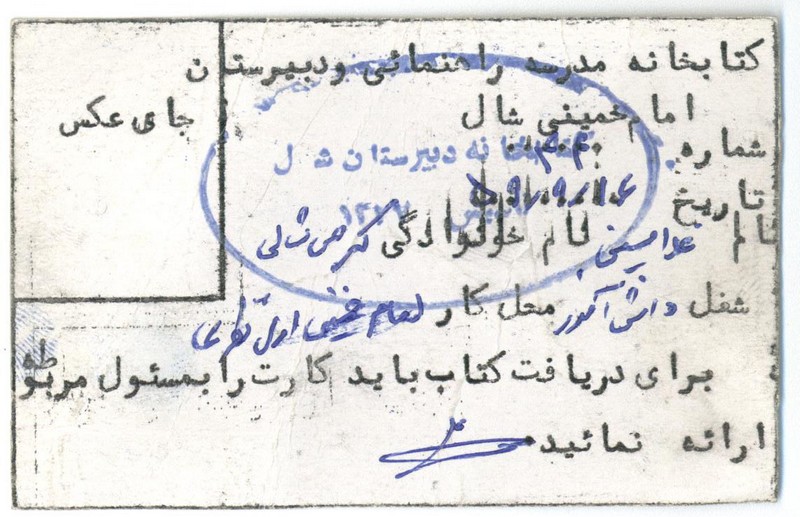 کتابخانه مدرسه راهنمائی ودبیرستان
امام خمینی شال
جای عکس
شماره
کتابخانه دبیرستان شال
تاریخ ۵۹/۹/۱۶
نام غلامحسین نام خوانوادگی کرمی شالی
شغل دانش آموز محل کار امام خمینی اول نظری
برای دریافت کتاب باید کارت را بمسئول مربوط
ارائه نمائید